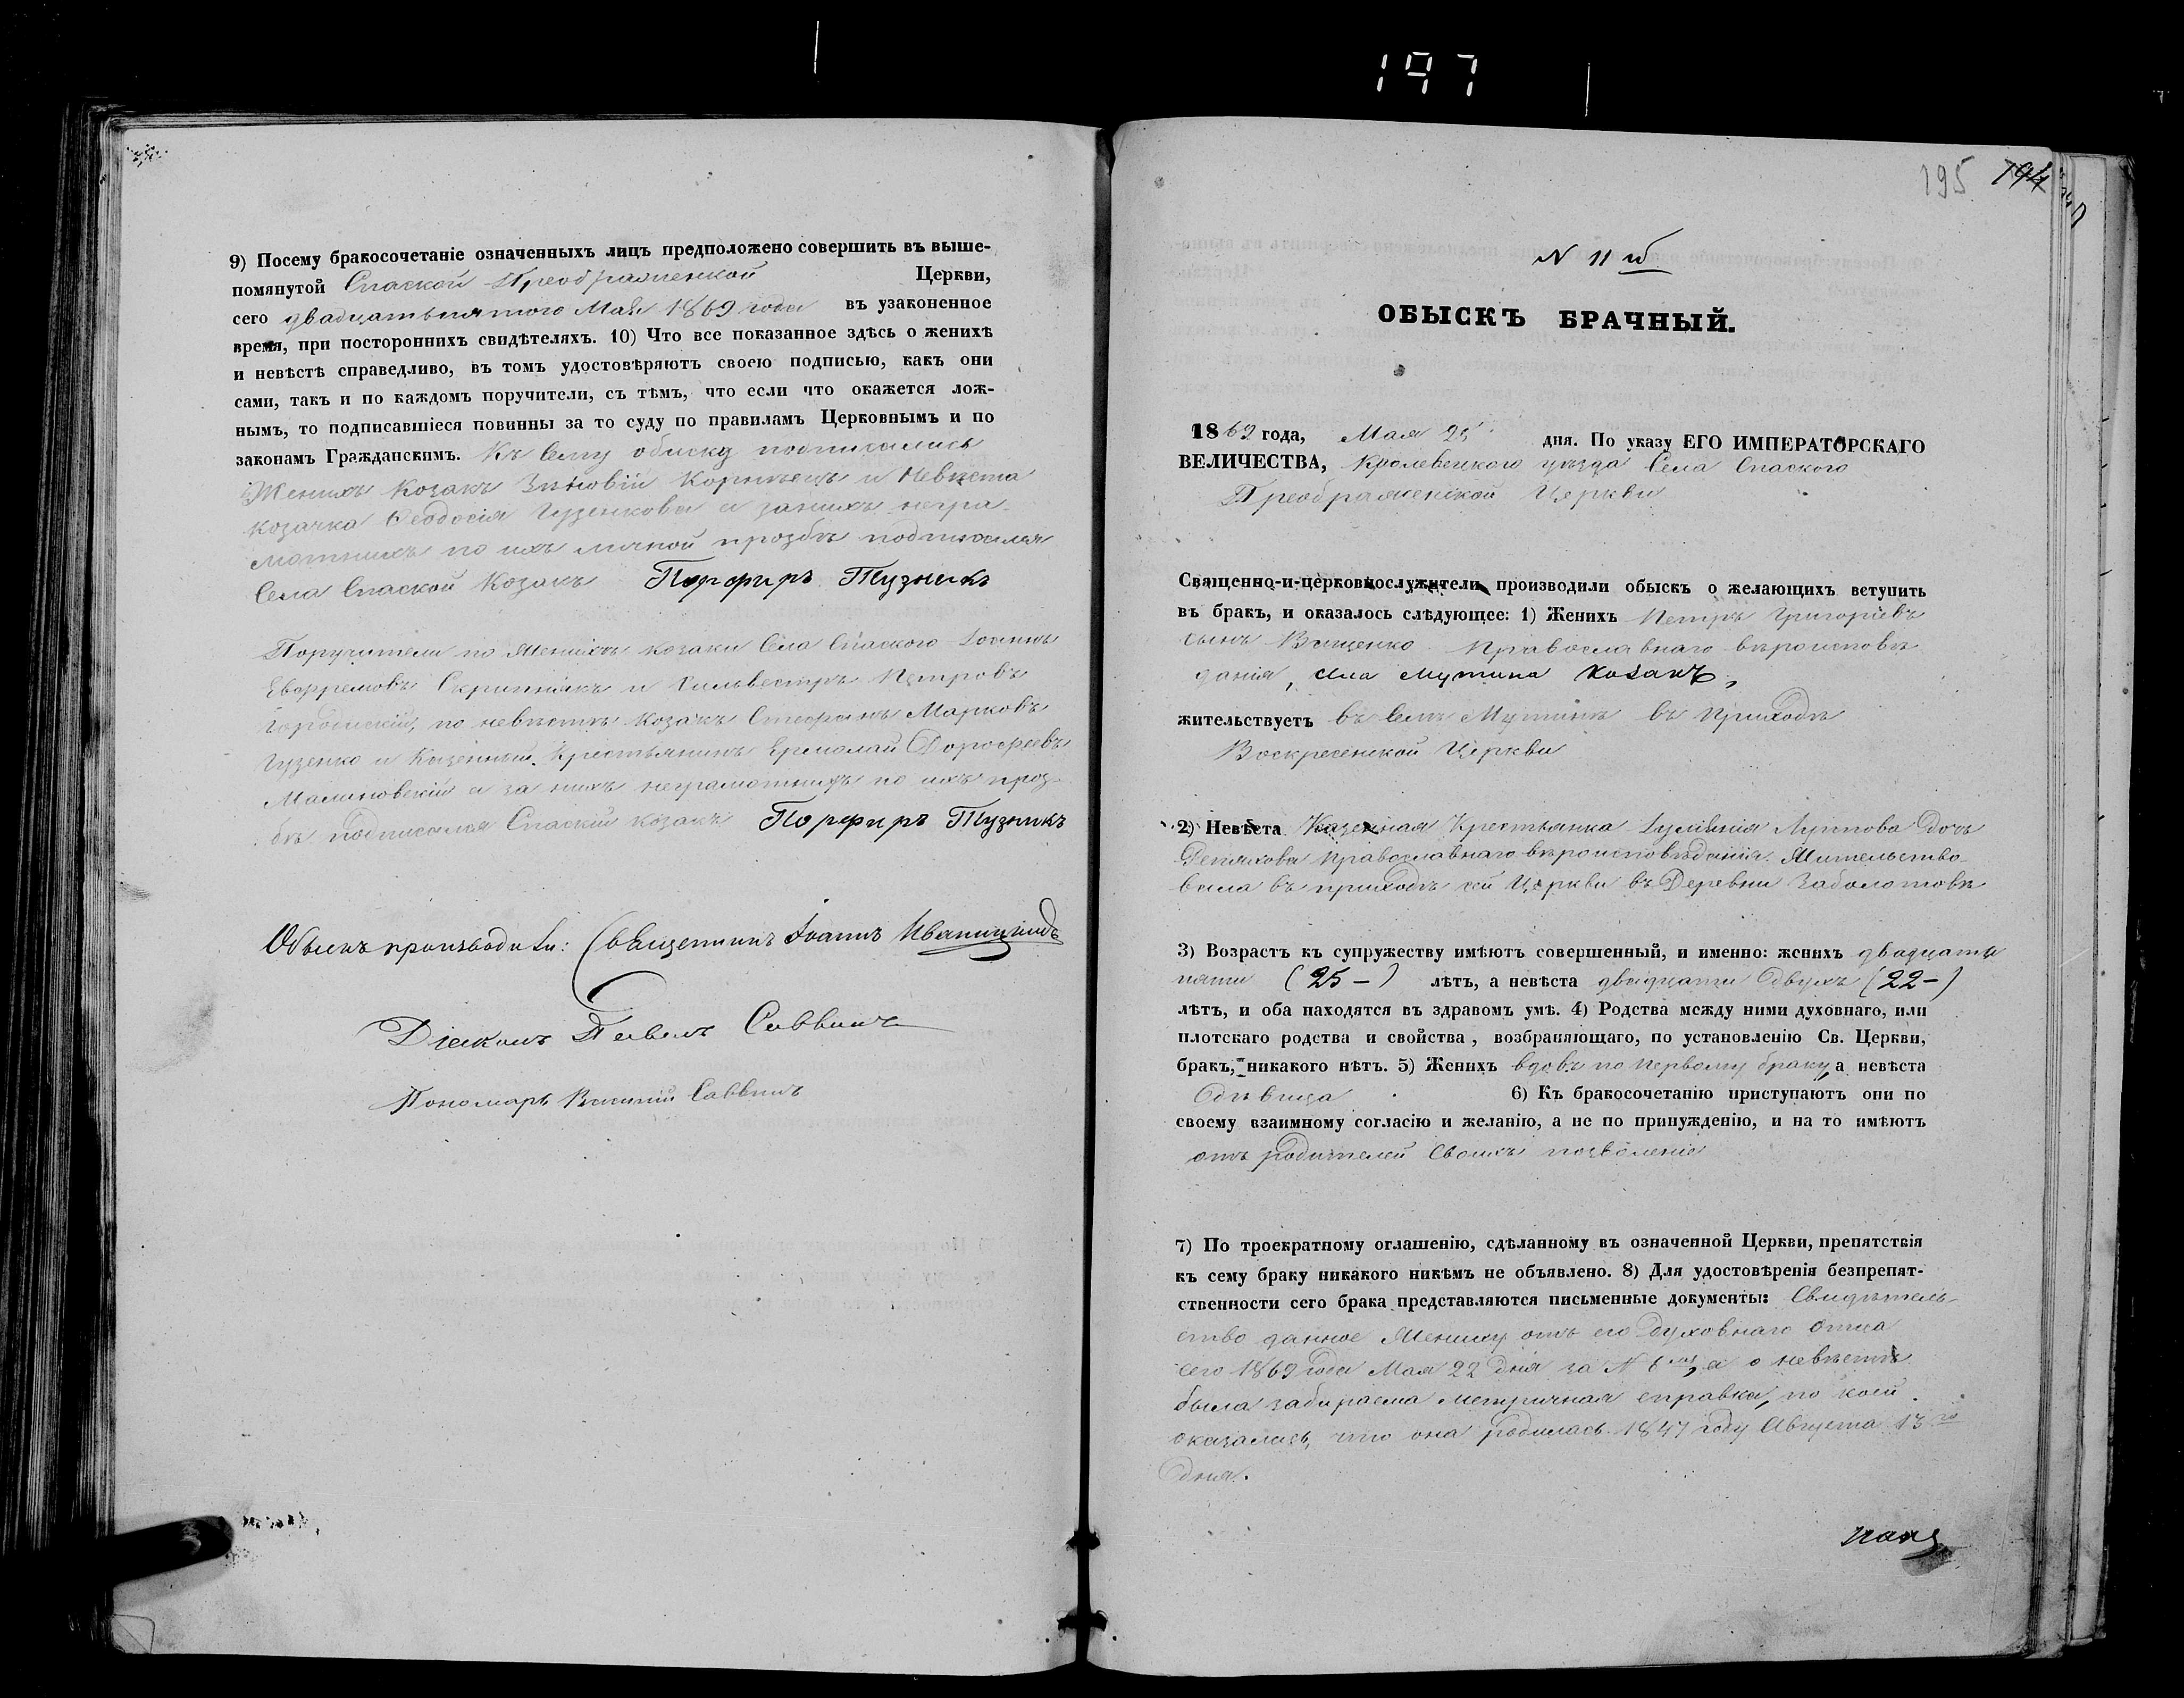 197
9) Посему бракосочетаніе означенныхъ лицъ предположено совершить въ выше-
помянутой Спаской Преображенской Церкви,
сего двадцать пятого Мая 1869 года въ узаконенное
время, при постороннихъ свидѣтеляхъ. 10) Что все показанное здѣсь о женихѣ
и невѣстѣ справедливо, въ томъ удостовѣряютъ своею подписью, какъ они
сами, такъ и по каждомъ поручители, съ тѣмъ, что если что окажется лож-
нымъ, то подписавшіеся повинны за то суду по правиламъ Церковнымъ и по
законамъ Гражданскимъ. Къ сему обыску подписались
Женихъ Козакъ Зѣновій Корнѣецъ и Невѣста
козачка Феодосія Гузенкова а занихъ негра-
мотныхъ по ихъ личной прозбѣ подписался
Села Спаской Козакъ Порфиръ Тузникъ
Поручители по Женихѣ козаки Села Спаского Іоаннъ
Евфремовъ Скрипникъ и Сильвестръ Петровъ
по невѣстѣ козакъ Стефанъ Марковъ
Гузенко и Казенный Крестьянинъ Ермолай Дорофеевъ
Малиновскій а за нихъ неграмотныхъ по ихъ проз-
бѣ подписался Спаскій козакъ Порфиръ Тузникъ
Обыскъ производили: Священникъ Іоаннъ
Діяконъ Павелъ Саввинъ
Пономарь Василій Саввинъ
195 194
N 11й
ОБЫСКЪ БРАЧНЫЙ.
1869 года, Мая 25 дня. По указу ЕГО ИМПЕРАТОРСКАГО
ВЕЛИЧЕСТВА, Кролевецкого уѣзда Села Спаского
Преображенской Церкви
Священно-и-церковнослужители производили обыскъ о желающихъ вступить
въ бракъ, и оказалось слѣдующее: 1) Женихъ Петръ Григоріевъ
сынъ Ващенко Православнаго вѣроисповѣ
данія, села Мутина Козакъ,
жительствуетъ въ Селѣ Мутинѣ въ Приходѣ
Воскресенской Церкви
2) Невѣста Казенная Крестьянка Луппова Дочь
Православнаго вѣроисповѣданія. Жительство-
вала въ приходѣ сей Церкви въ Деревни Заболотовѣ
3) Возрастъ къ супружеству имѣютъ совершенный, и именно: женихъ двадцати
пяти (25 –) лѣтъ, а невѣста двадцати двухъ (22 –)
лѣтъ, и оба находятся въ здравомъ умѣ. 4) Родства между ними духовнаго, или
плотскаго родства и свойства, возбраняющаго, по установленію Св. Церкви,
бракъ, никакого нѣтъ. 5) Женихъ вдовъ по первому браку, а невѣста
дѣвица 6) Къ бракосочетанію приступаютъ они по
своему взаимному согласію и желанію, а не по принужденію, и на то имѣютъ
отъ родителей своихъ позволеніе
7) По троекратному оглашенію, сдѣланному въ означенной Церкви, препятствія
къ сему браку никакого никѣмъ не объявлено. 8) Для удостовѣренія безпрепят-
ственности сего брака представляются письменные документы: Свидѣтель-
ство данное Жениху отъ его духовнаго отца
сего 1869 года Мая 22 дня за N а о невѣстѣ
была забираема метричная справка, по коей
оказалось, что она родилась 1847 году Августа 13го
Дня.